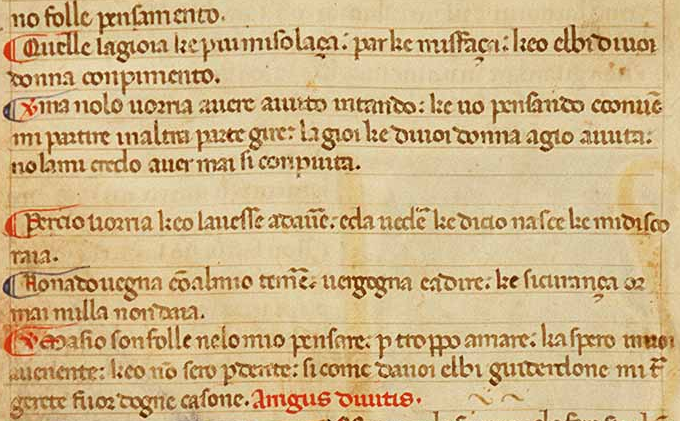 no folle pensamento.
Quelle lagioia ke piu misolaça: par ke misfaça: keo elbi diuoi
donna conpimento.
ma nolo uorria auere auuto intando: ke uo pensando econuē
mi partire inaltra parte gire: la gioi ke diuoi donna agio auuta:
no la mi credo auer mai si compiuta.
Percio uorria keo lauesse adauē. eda uedē ke dicio nasce ke midisco
raia.
Nonadouegna cōalmio temē. uergogna eadire: ke sicurança or
mai nulla non daia.
Masio son folle nelo mio pensare. p troppo amare: ka spero inuoi
aueniente: keo nō sero pdente: si come dauoi elbi guiderdone mi
gerete fuor dogne casone. Arrigus diuitis.